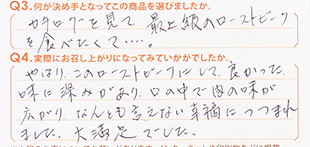 Q3.何が決め手となってこの商品を選びましたか。
カタログを見て、最上級のローストビーフ
を食べたくて….。
Q4.実際にお召し上がりになってみていかがでしたか。
やはり、このローストビーフにして、良かった。
味に深みがあり、口の中で肉の味が
広がり、なんとも言えない幸福につつまれ
ました。大満足でした。